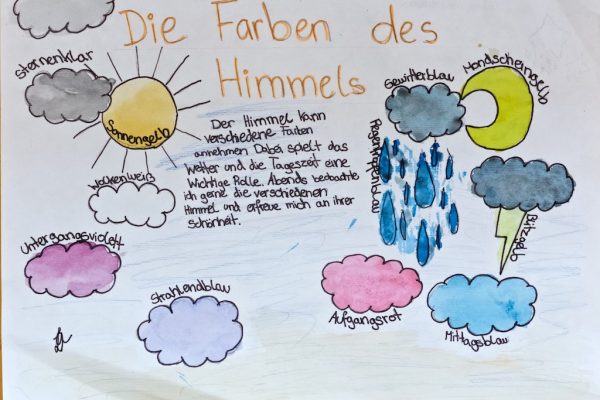 Die Farben des
Himmels
Sternenklar
Sonnengelb
Wolkenweiß
Untergangsviolett
Strahlendblau
Der Himmel kann
verschiedene Farben
annehmen. Dabei spielt das
Wetter und die Tageszeit eine
Wichtige Rolle. Abends beobachte
ich gerne die verschiedenen
Himmel und erfreue mich an ihrer
schönheit.
Gewitterblau
Mondscheingelb
Regentropfenblau
Blitzgelb
Aufgangsrot
Mittagsblau